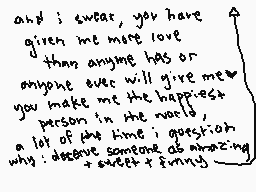 and i swear, you have
given me more love
than anyone has or
anyone ever will give me♥
you make me the happiest
person in the world,
a lot of the time i question
why i deserve someone as amazing
+ sweet + funny